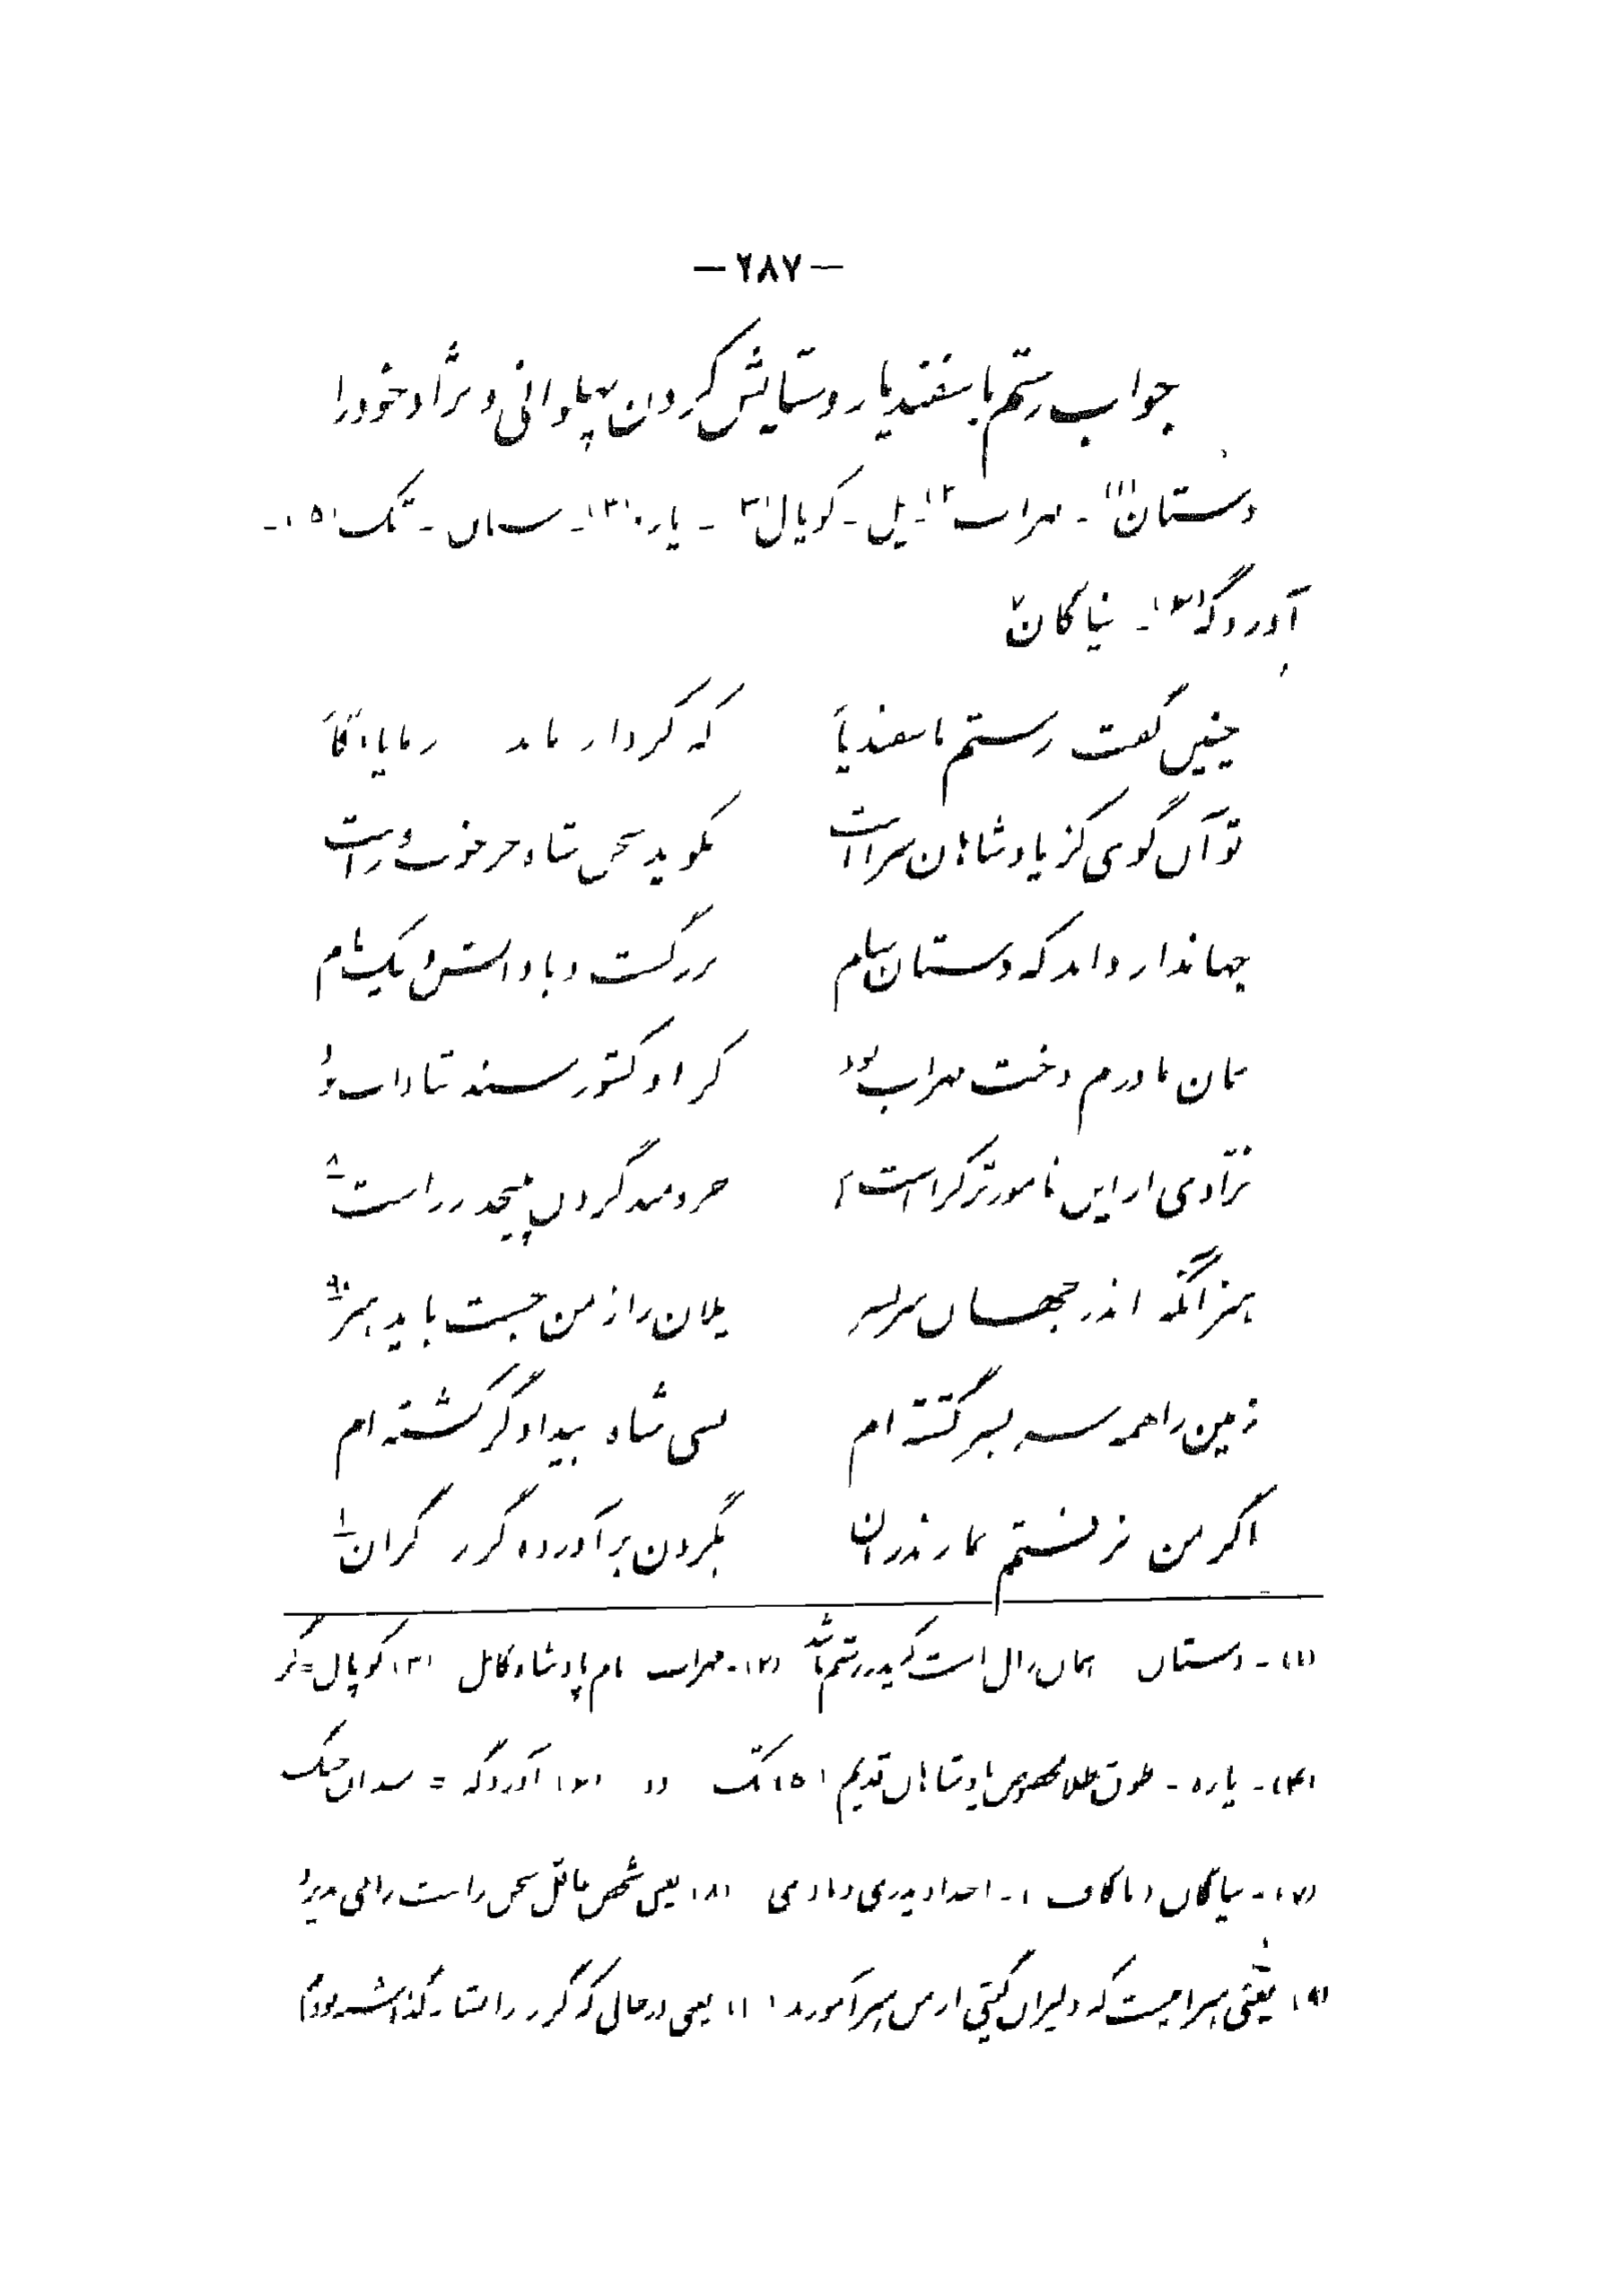 — ۲۸۷ —
جواب رستم باسفندیار و ستایش کردن پهلوانی و نژاد خود را
دستان(۱) - مهراب(۲) - یل - کوپال(۳) - یاره(۴) - سمان - تک(۵) -
آوردگه(۶) - نیاکان۷
چنین گفت رستم باسفندیار که کردار ماند ز ما یادگار
تو آن گوی کز پادشاهان سزاست نگوید سخن شاه جز خوب و راست
جهاندار داند که دستان سام بزرگست و با دانش و نیک نام
همان مادرم دخت مهراب بود کز او کشور سند شاداب بود
نژادی از این نامورتر کراست؟ خردمند گردن نپیچد ز راست۸
هنر آنکه اندر جهان سربسر یلان را ز من جست باید هنر۹
زمین را همه سربسر گشته‌ام بسی شاه بیدادگر کشته‌ام
اگر من نرفتم بمازندران بگردن برآورده گرز گران۱
(۱) - دستان همان زال است که پدر رستم باشد (۲) - مهراب نام پادشاه کابل (۳) کوپال = گرز
(۴) - یاره - طوق طلا مخصوص پادشاهان قدیم (۵) تک دو (۶) آوردگه = میدان جنگ
(۷) - نیاکان (با کاف) - اجداد پدری و مادری (۸) یعنی شخص عاقل سخن راست را می پذیرد
(۹) یعنی هنر آنست که دلیران گیتی از من هنر آموزند (۱) یعنی در حالی که گرز را بشانه گذاشته بودم